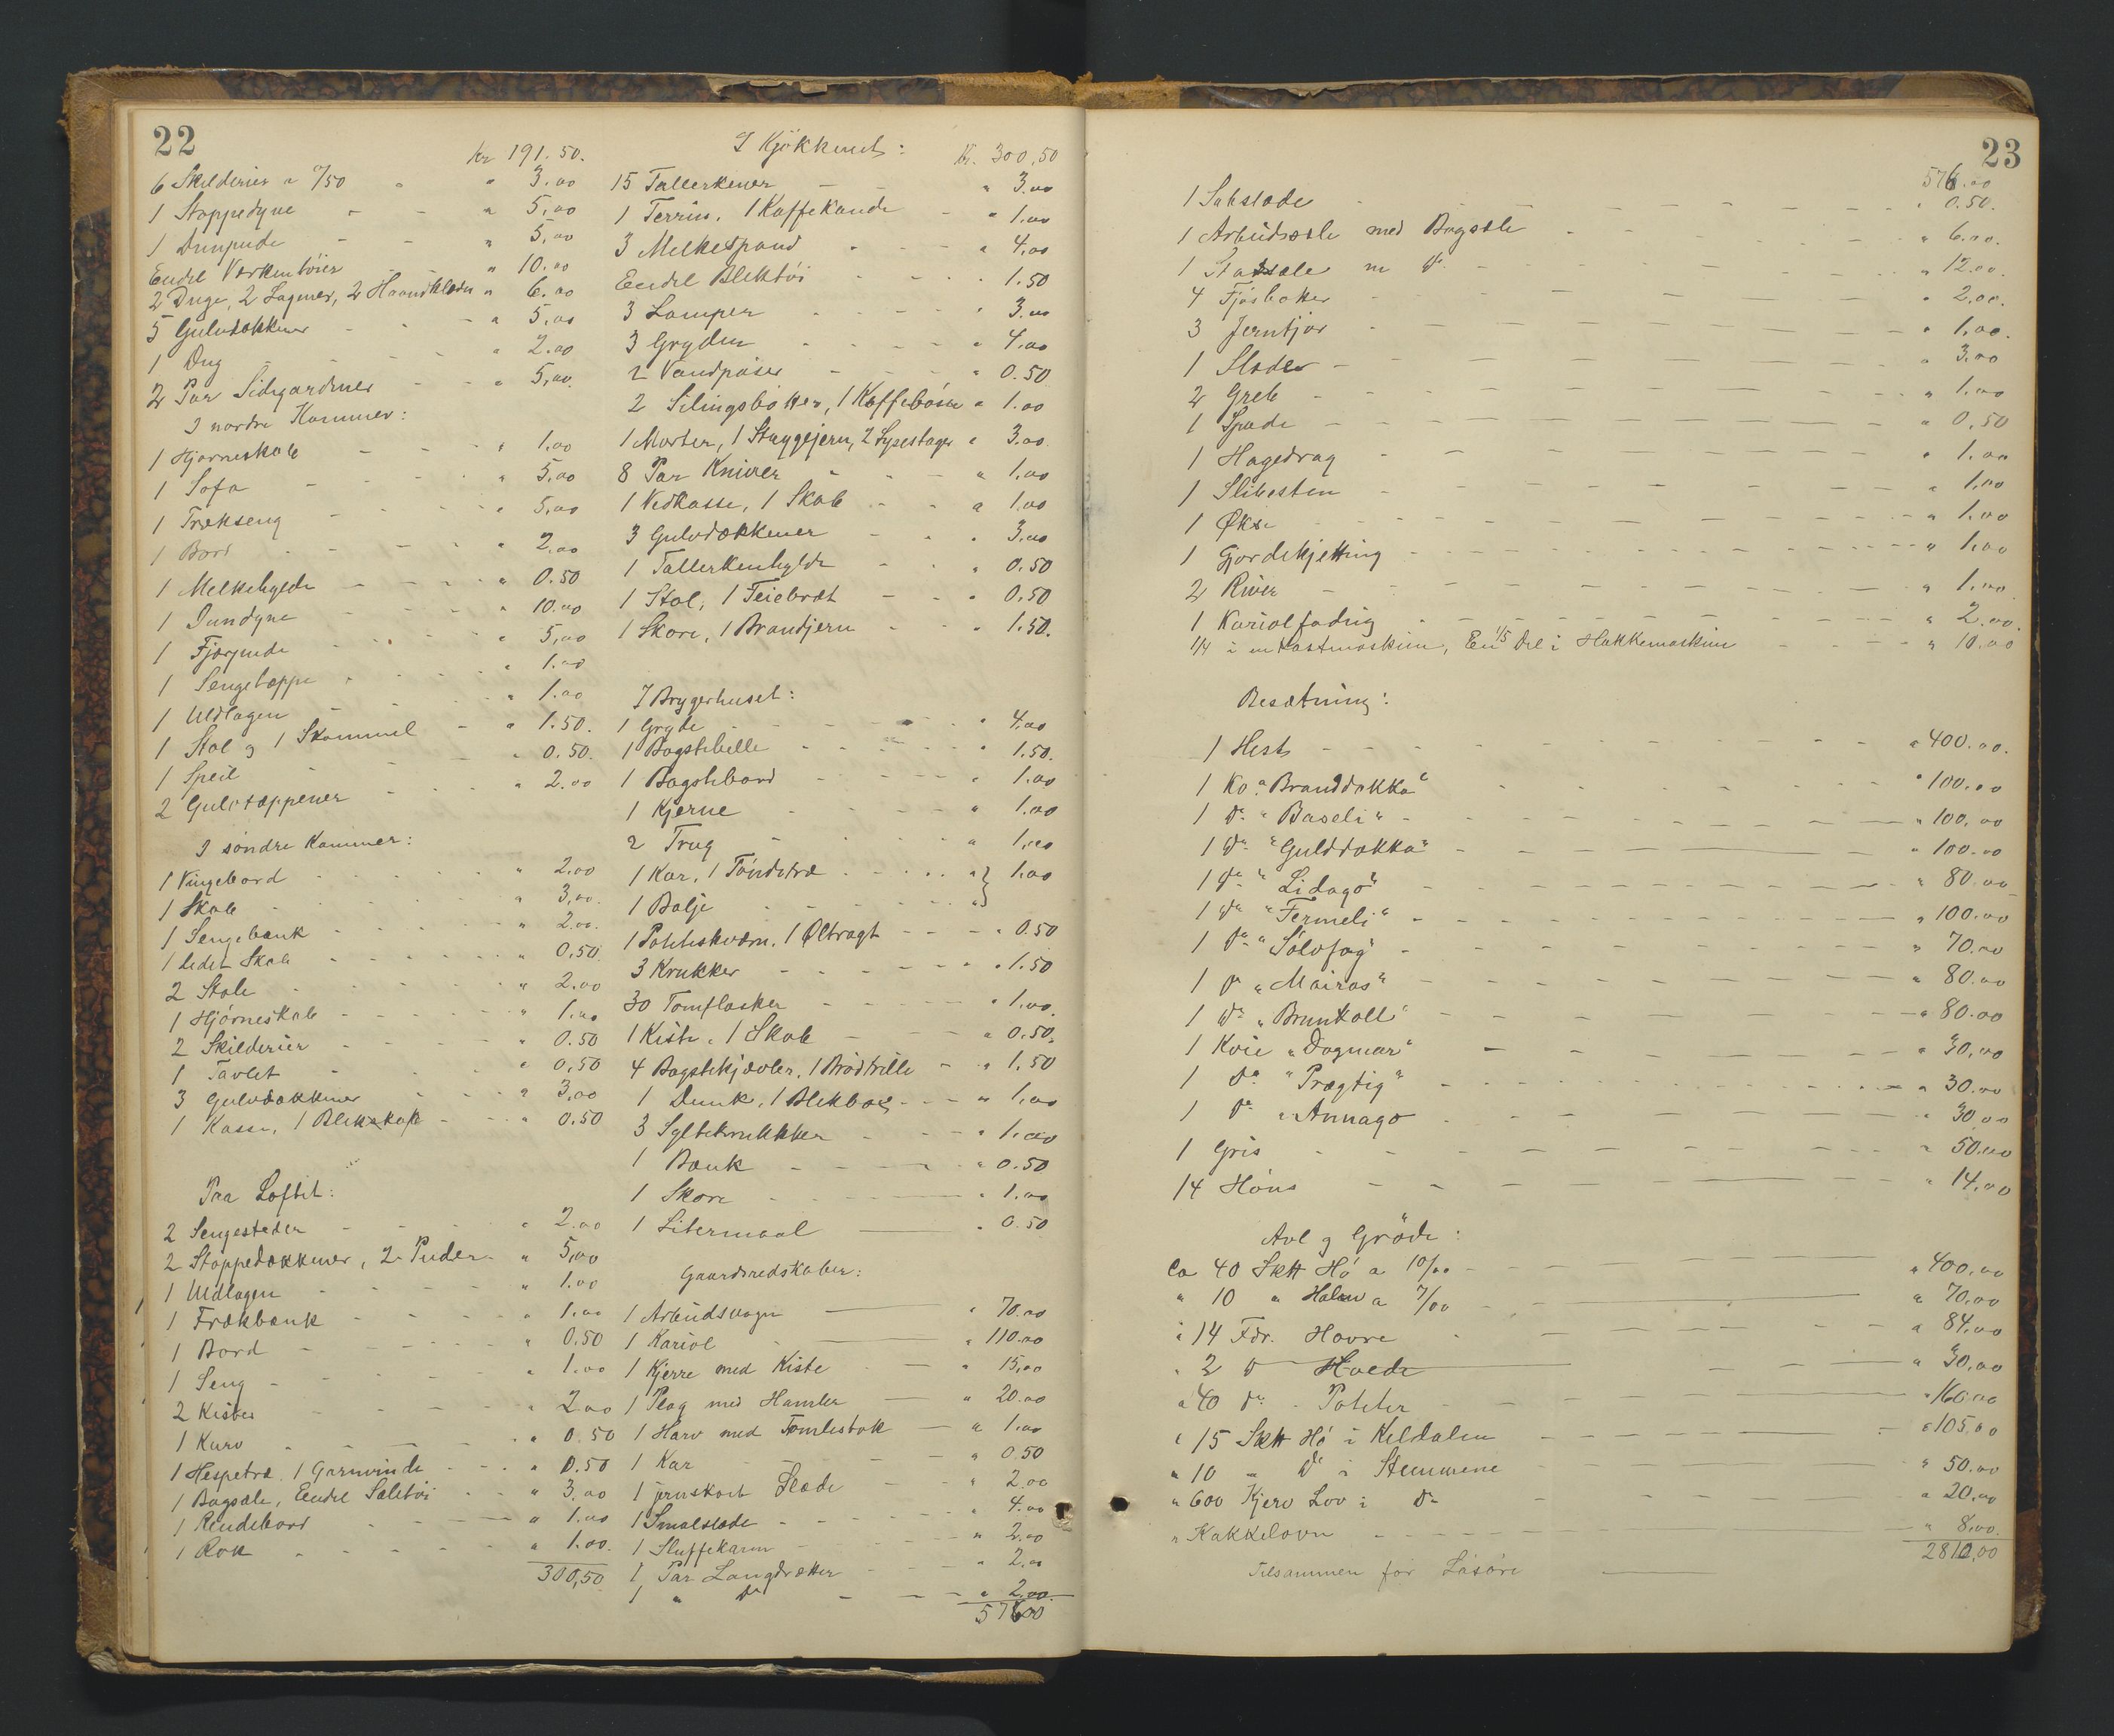 22
kr 191.50.
6 Skilderier a "/50 " " 3.00
1 Stoppedyne - - " 5,00
1 Dunpude - - " 5,00
Endel Værkentøier " 10.00
2 Duge, 2 Lagner, 2 Haandklæder " 6.00
5 Gulvdækkener - - " 5,00
1 Dug - - " 2.00
2 Par Sidegardiner - - " 5,00.
I nordre Kammer:
1 Hjørneskab - - " 1,00
1 Sofa - - " 5,00
1 Trækseng - - " 5,00
1 Bord - - " 2.00
1 Melkehylde - - " 0.50
1 Dundyne - - " 10.00
1 Fjærpude - - " 5,00
1 Sengetæppe - - " 1.00
1 Uldlagen - - " 1.00
1 Stol og 1 Skammel - " 1.50.
1 Speil - - " 0.50.
2 Gulvtæppener - - " 2.00
I søndre Kammer:
1 Vingebord - - " 2.00
1 Skab - - " 3,00.
1 Sengebænk - - " 2.00.
1 lidet Skab - - " 0,50.
2 Stole - - " 2.00
1 Hjørneskab - - " 1.00
2 Skilderier - - " 0.50
1 Tavlet - - " 0,50
3 Gulvdækkener - - " 3,00
1 Kasse, 1 Blekskap - - " 0.50
Paa Loftet:
2 Sengesteder - - " 2.00
2 Stoppedækkener, 2 Puder - " 5,00
1 Uldlagen - - " 1.00
1 Trækbænk - - " 1.00
1 Bord - - " 0,50
1 Seng - - " 1.00
2 Kister - - " 2.00
1 Kurv - - " 0.50
1 Hespetræ, 1 Garnvinde - - " 0.50
1 Bagsæle, Endel Sæletøi - - " 3,00
1 Rendebord - - " 1.00
1 Rok - - " 1.00.
300,50
I Kjøkkenet: Kr. 300,50
15 Tallerkener - - " 3.00
1 Terrin, 1 Kaffekande - " 1.00
3 Melkespand - - " 4,00
Endel Bliktøi - - 1.50
3 Lamper - - " 3.00
3 Gryder - - " 4.00
2 Vandpøser - - " 0.50
2 Silingsbøtter, 1 Kaffebøsse " 1.00
1 Morter, 1 Strygejern, 2 Lysestager " 3.00.
8 Par Kniver - - " 1,00
1 Vedkasse, 1 Skab - - " 1.00
3 Gulvdækkener - - " 3.00
1 Tallerkenhylde - - " 0.50
1 Stol, 1 Feiebræt - - " 0.50
1 Skore, 1 Brandjern - - " 1.50.
I Brygerhuset:
1 Gryde - - " 4.00
1 Bagstehelle - - " 1.50.
1 Bagstebord - - " 1.00
1 Kjerne - - " 1.00
2 Trug - - " 1.00
1 Kar, 1 Tøndetræ - - " } 1.00
1 Balje - - " }
1 Poteteskværn, 1 Øltragt - - - " 0.50
3 Krukker - - " 1.50
30 Tomflasker - - " 1.00.
1 Kiste, 1 Skab - - " 0.50.
4 Bagstekjævler, 1 Brødtrille - " 1.50
1 Dunk, 1 Blekbox - - - " 1.00
3 Syltekrukkker - - " 1.00
1 Bænk - - " 0.50
1 Skore - - " 1.00
1 Litermaal - " 0.50
Gaardsredskaber:
1 Arbeidsvogn - " 70.00
1 Kariol - " 110.00
1 Kjerre med Kiste - " 15,00
1 Plog med Humler - " 20.00
1 Harv med Tømlestok - " 1.00
1 Kar - - " 0.50
1 jernskoet Slæde - " 2.00
1 Smalslæde - - " 4.00
1 Sluffekarm - - " 2.00
1 Par Langdrætter - - " 2.00
1 " Do - - " 2.00.
576.00
23
576.00
1 - - " 0.50.
1 Arbeidssele med Bagsele - - " 6.00.
1 Stassele m Do - - " 12.00.
4 Fjøsbøtter - - " 2.00.
3 Jerntjor - - " 1.00.
1 Slæder - - " 3.00
2 Greb - - " 1.00
1 Spade - - " 0.50
1 Hagedrag - - " 1.00
1 Slibesten - - " 1.00
1 Økse - - " 1.00
1 Gjordekjetting - - " 1.00
2 River - - " 1.00
1 Kariolfading - - " 2.00.
1/4 i en Kastmaskin, En 1/5 Del i Hakkemaskin - - " 10.00
Besætning:
1 Hest - - " 400.00.
1 Ko "Branddokka" - - " 100.00
1 Do "Baseli" - - " 100.00
1 Do "Gulddokka" - - " 100.00
1 Do "Lidago" - - " 80.00
1 Do "Fermeli" - - " 100.00
1 Do "Sølvfag" - - " 70.00
1 Do "Mairos" - - " 80.00
1 Do "Brunkoll" - - " 80.00
1 Kvie "Dagmar" - - " 30,00
1 Do "Prægtig" - - " 30.00
1 Do "Annago - - " 30.00
1 Gris - - " 50.00
14 Høns - - " 14.00
Avl og Grøde:
Ca 40 Sktt Hø a 10/00 - - " 400,00
" 10 " Halm a 7/00 - - " 70,00
" 14 Tdr. Havre - - " 84,00
" 2 D Hvede - " 30,00
" 40 Do - Poteter - - " 160.00
" 15 Sktt Hø i Keldalen - - " 105,00
" 10 " Do i Stemmene - - " 50.00
" 600 Kjerv Løv i Do - - " 20,00
" Kakkelovn - - " 8,00.
Tilsammen for Løsøre - 2810,00